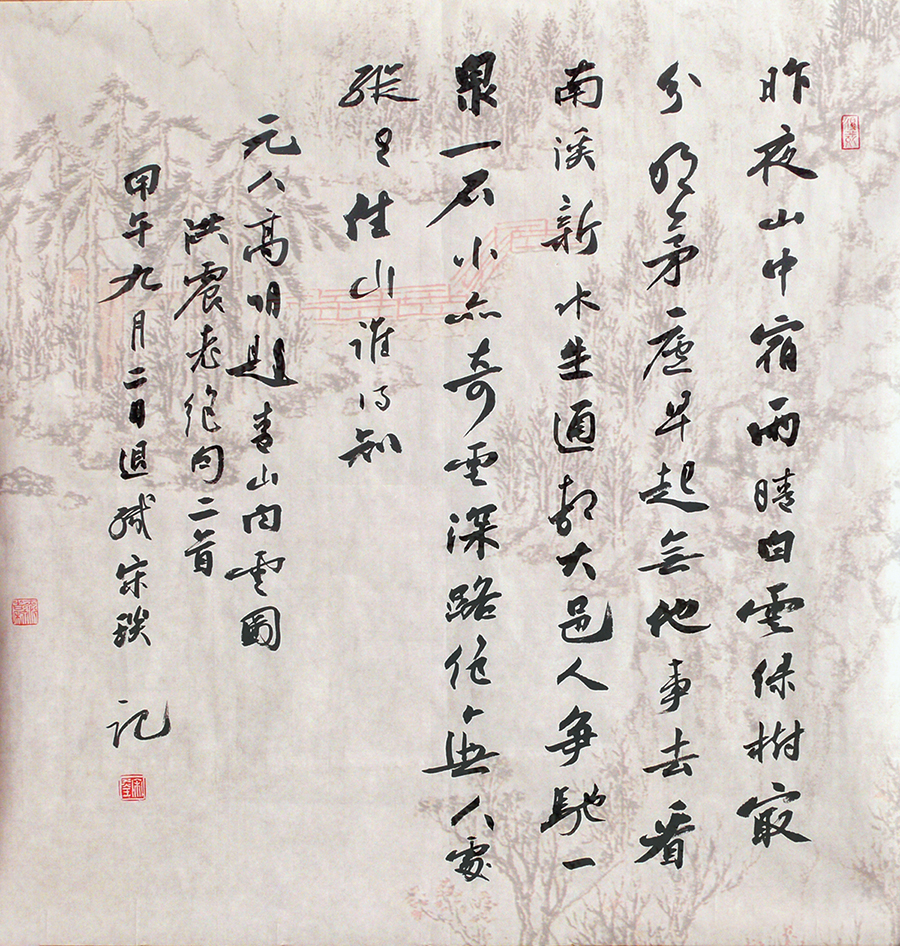 昨夜山中宿雨晴白雲綠樹寂
分明茅廬早起無他事去看
南溪新水生通都大邑人爭馳一
泉一石小亦奇雲深路絕無人處
縱有佳山誰得知
元人高明題青山白雲圖
洪震老絕句二首
甲午九月二日退 宋 記